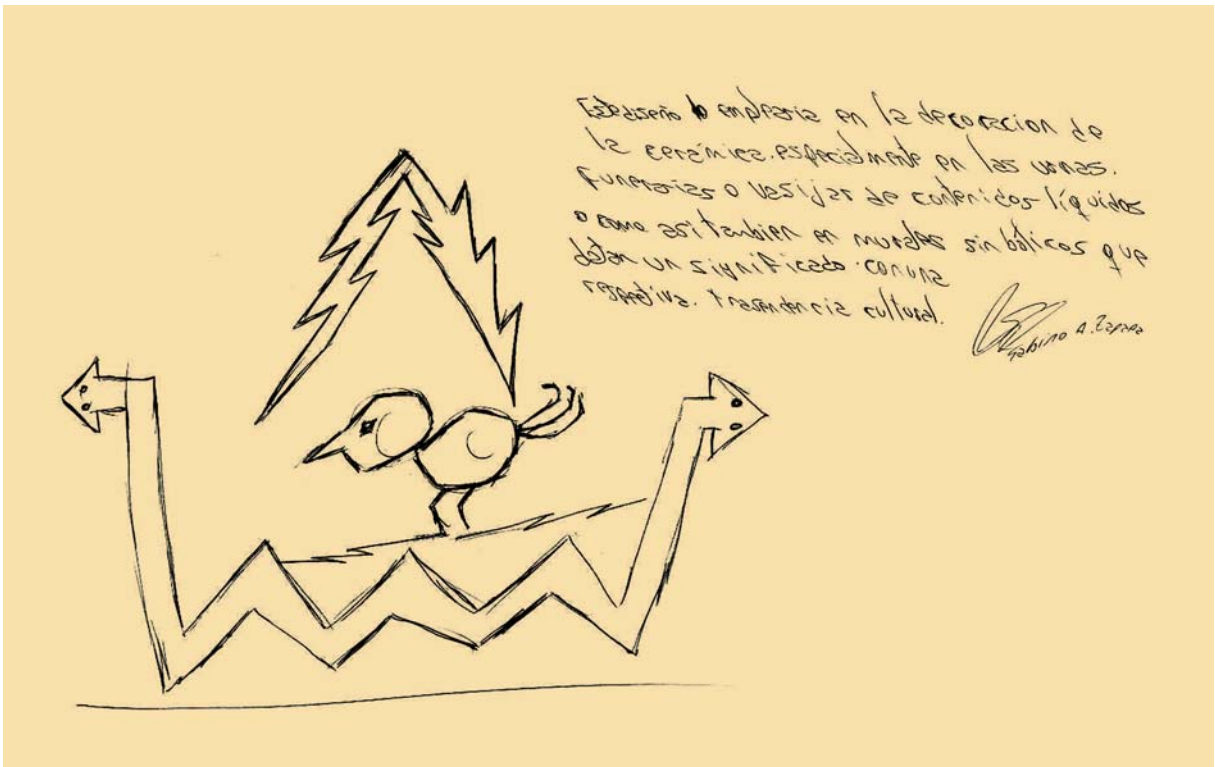 Este diseño lo emplearia en la decoracion de
la cerámica. especialmente en las urnas.
funerarias o vasijas de contenidos líquidos
o como asi tambien en murales simbólicos que
dotan un significado con una
respectiva. trasendencia cultural.
Sabino A. Zapana